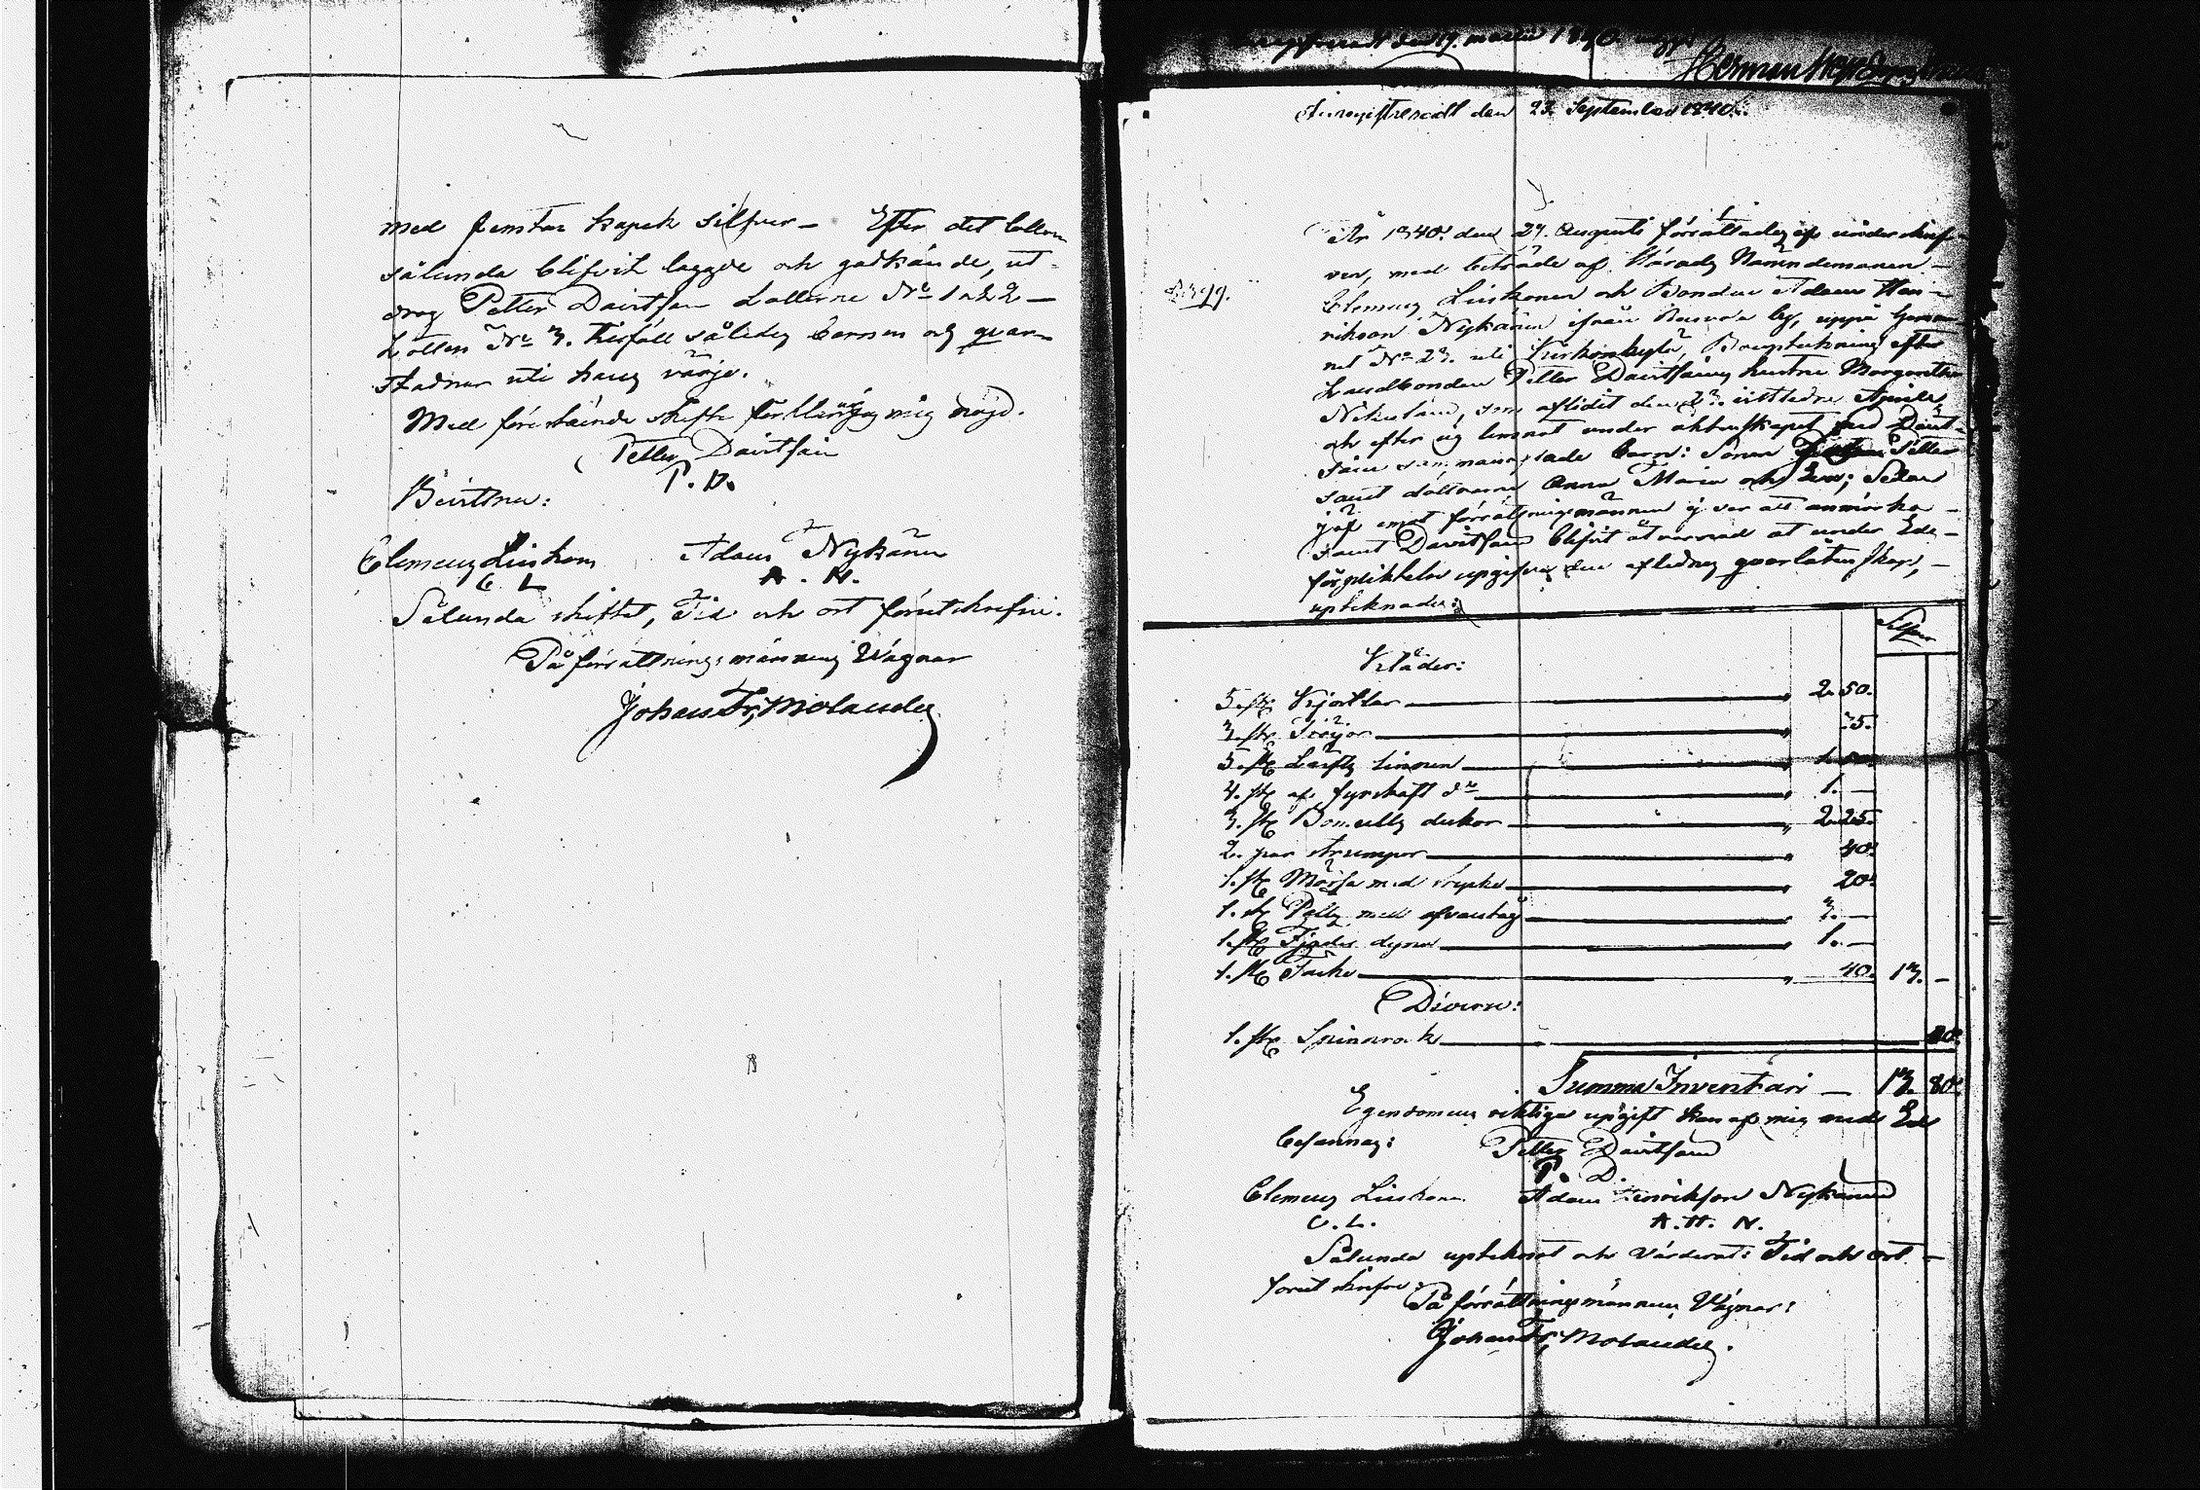 med femton kopek silfver – Efter det lotterne
sålunda blifvit lagde och godkände, ut-
drog Petter Davitsain Lotterne No 1 & 2 –
Lotten No 3. tillföll således barnen och quar-
stadnar uti hans värjo.
Med förestående skifte förklarar jag mig nöjd.
Petter Davitsain
P. D.
Bevittna:
Clemens Liuskoin Adam Nykänen
C L A. N.
Sålunda skiftat, Tid och ort förutskrefne.
På förrättningsmännens Vägnar
Johan Fr. Molander
Inregistreradt den 19. martii 1840.
Herman
Inregistreradt den 23 September 1840.
År 1840. den 27. Augusti förrättades af underskref-
ven, med biträde af Härads Nämndemannen
Clemens Liuskonen och Bonden Adam Hen-
rikson Nykänen ifrån by, uppå hemma-
net No 23. uti Kirkonkylä, Boupteckning efter
Landbonden Petter Davitsains hustru Margaretha
som aflidit den sistledne Aprilis
och efter sig lemnat under äktenskapet med Davit-
sain sammanaflade barn: Sonen Petter
samt döttrarne Anna Maria och Eva; Sedan
jäf emot förrättningsmännen ej var att anmärka
samt Davitsain blifvit åtvarnad at under Ede-
förpliktelse upgifva den aflednas qvarlåtenskap,
uptecknades:
Silfver
Kläder:
5. st. Kjortlar 2. 50.
3. st. Tröjor 75.
5. st. Lärfts linnen 1. 50.
4. st. af fyrskaft do 1. –
3. st. Bomulls dukar 2. 25.
2. par strumpor 40.
1. st. Mössa med 20.
1. st. Pells med 3. –
1. st. Fjäder dyna 1. –
1. st. Täcke 40. 13. –
Diverse:
1. st. Spinnrock 80.
Summa Inventari – 13. 80.
Egendomens riktiga upgift kan af mig med Ed
besannas: Petter Davitsain
P. D.
Clemens Liuskonen Adam Henrikson Nykänen
C. L. A. H. N.
Sålunda uptecknat och värderat: Tid och ort –
förut skrefne.
På förrättningsmännens Vägnar:
Johan Fr. Molander.